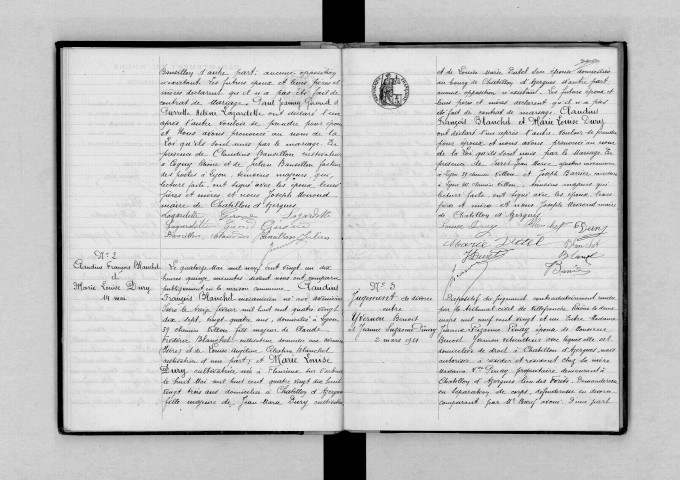 Bansillon d'autre part, aucune opposition
n'existant. Les futurs époux et leurs pères et
mères déclarent qu'il n'a pas été fait de
contrat de mariage. Paul Jamy Girond et
Pierrette Hélène Lagardette ont déclaré l'un
après l'autre vouloir se prendre pour époux
et Nous avons prononcé au nom de la
Loi qu'ils sont unis par le mariage. En
présence de Claudius Bansillon cultivateur
à Cogny Rhône et de Julien Bansillon facteur
des postes à Lyon, témoins majeurs, qui,
lecture faite, ont signé avec les époux, leurs
pères et mères et nous Joseph
maire de Chatillon d'Azergues
Lagardette Lagardette
Lagardette Girond
Bansillon Claudius Bansillon Julien
N° 2
Claudius François Blanchet
et
Marie Louise Dury
14 mai
Le quatorze Mai mil neuf cent vingt, un dix
heures quinze minutes devant nous ont comparu
publiquement en la maison commune Claudius
François Blanchet mécanicien né
Isère le treize février mil huit cent quatre vingt
dix sept, vingt quatre ans, domicilié à Lyon
39 chemin Villon fils majeur de Claude
Frédéric Blanchet cultivateur domicilié aux
Isère) et de Louise Angeline Célestine Blanchet
cultivatrice d'une part; et Marie Louise
Dury cultivatrice née à Fleurieux sur l'Arbresle
le huit Mai mil huit cent quatre vingt dix huit
vingt trois ans domiciliée à Chatillon d'Azergues
fille majeure de Jean Marie Dury cultivateur
et de Louise Marie Dutel son épouse domiciliés
au bourg de Chatillon d'Azergues d'autre part,
aucune opposition n'existant. Les futurs époux et
leurs pères et mères déclarent qu'il n'a pas
été fait de contrat de mariage. Claudius
François Blanchet et Marie Louise Dury
ont déclaré l'un après l'autre vouloir se prendre
pour époux et nous avons prononcé au nom
de la Loi qu'ils sont unis par le mariage. En
présence de Jean Marie
à Lyon 39 chemin Villon et Joseph Barrier
à Lyon chemin Villon, témoins majeurs qui
lecture faite, ont signé avec les époux, leurs
pères et mères et nous Joseph maire
de Chatillon d'Azergues
Dury Blanchet Dury
Marie Dutel Blanchet
N° 3
Jugement de divorce
entre
Yvernon Benoit
et Jeanne Suzanne Penay
2 mars 1921
Dispositif du jugement contradictoirement rendu
par le tribunal civil de Villefranche, Rhône le deux
mars mil neuf cent vingt et un Entre Madame
Jeanne Suzanne Penay épouse de Monsieur
Benoit Yvernon cultivateur avec lequel elle est
domiciliée de droit à Chatillon d'Azergues, mais
autorisée à résider et résidant chez sa mère
Madame Vve Penay propriétaire demeurant à
Chatillon d'Azergues lieu des Forêts. Demanderesse
en séparation de corps, défenderesse en divorce
comparant par Me avoué. D'une part